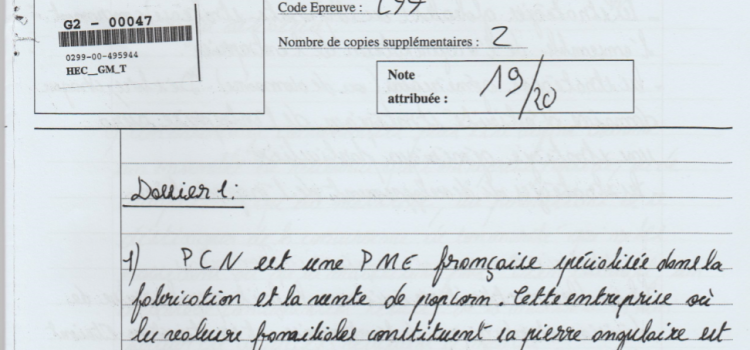 G2 - 00047
0299-00-495944
HEC__GM_T
Code Epreuve :
Nombre de copies supplémentaires : 2
Note
attribuée :
19/20
Dossier 1:
1) PCN est une PME française spécialisée dans la
fabrication et la vente de popcorn. Cette entreprise où
les valeurs familiales constituent la pierre angulaire est